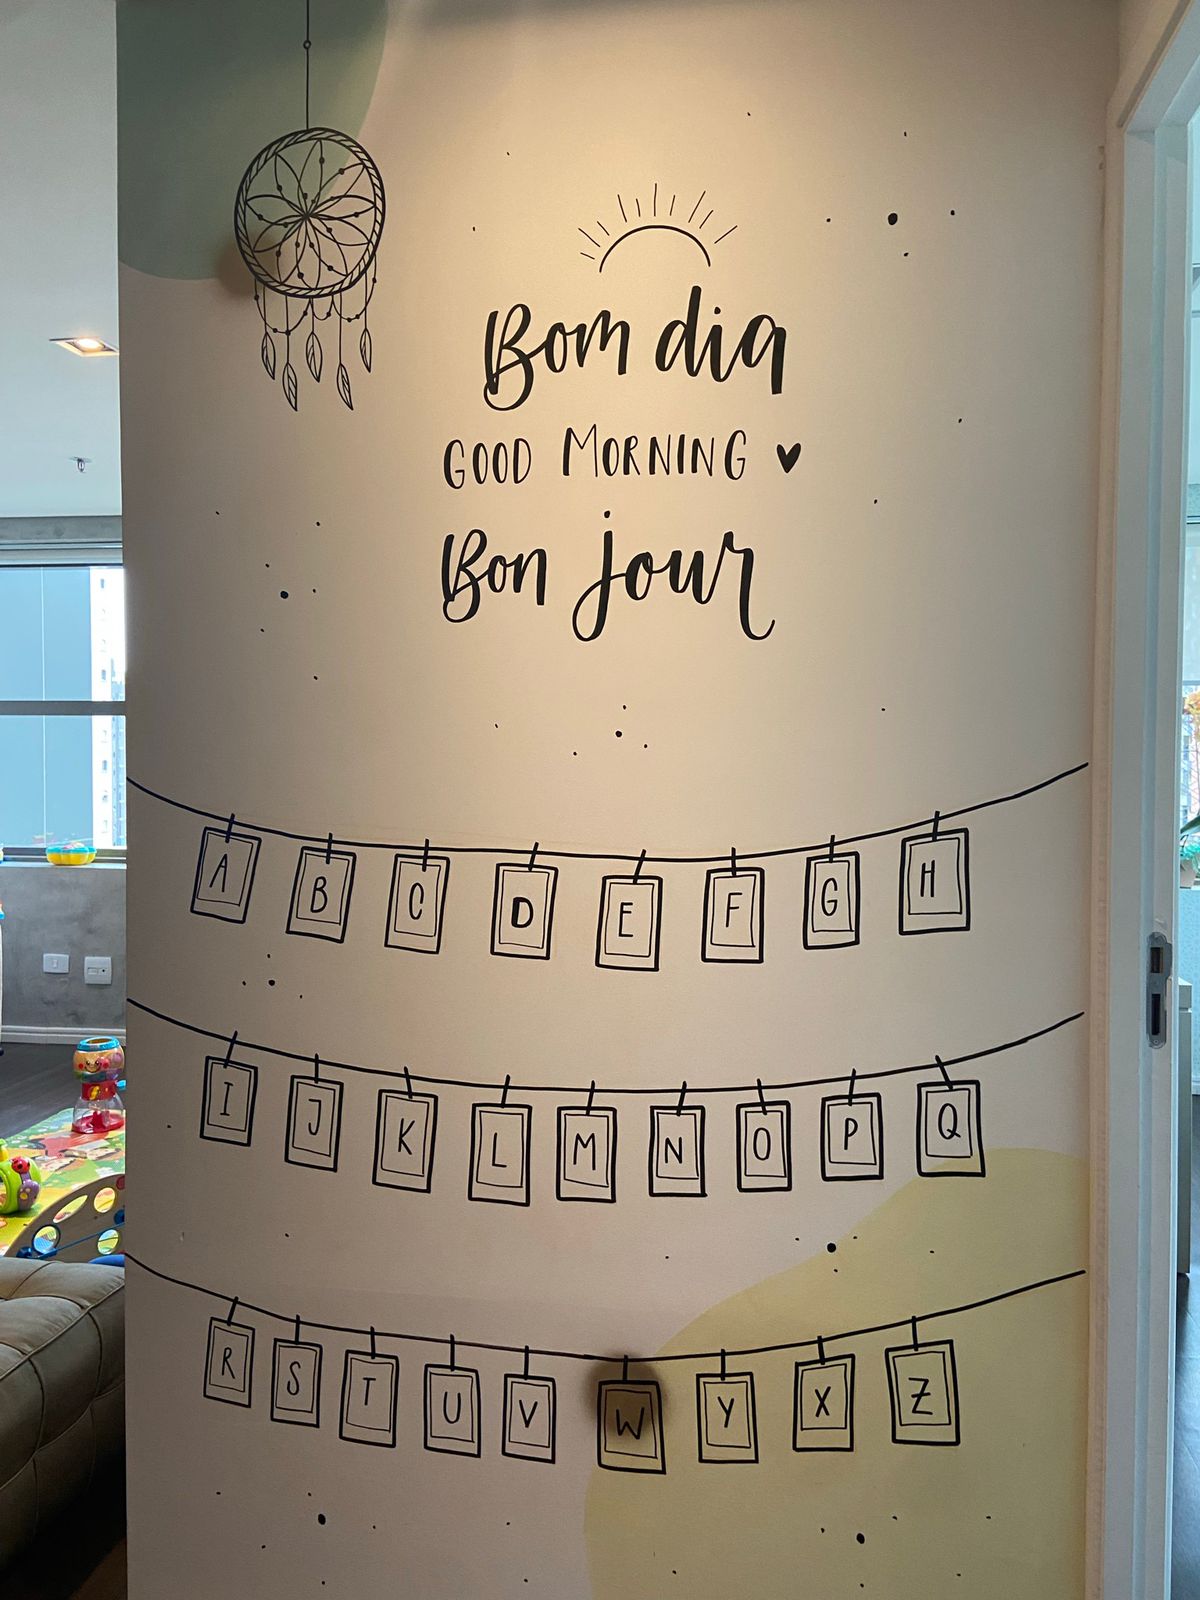 Bom dia
GOOD MORNING ♥
Bon jour
A B C D E F G H
I J K L M N O P Q
R S T U V W Y X Z